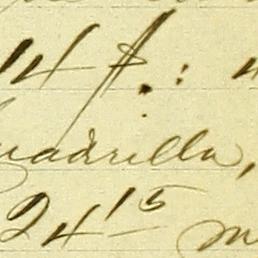 14 f.: 4
uadrilla,
24 15 m